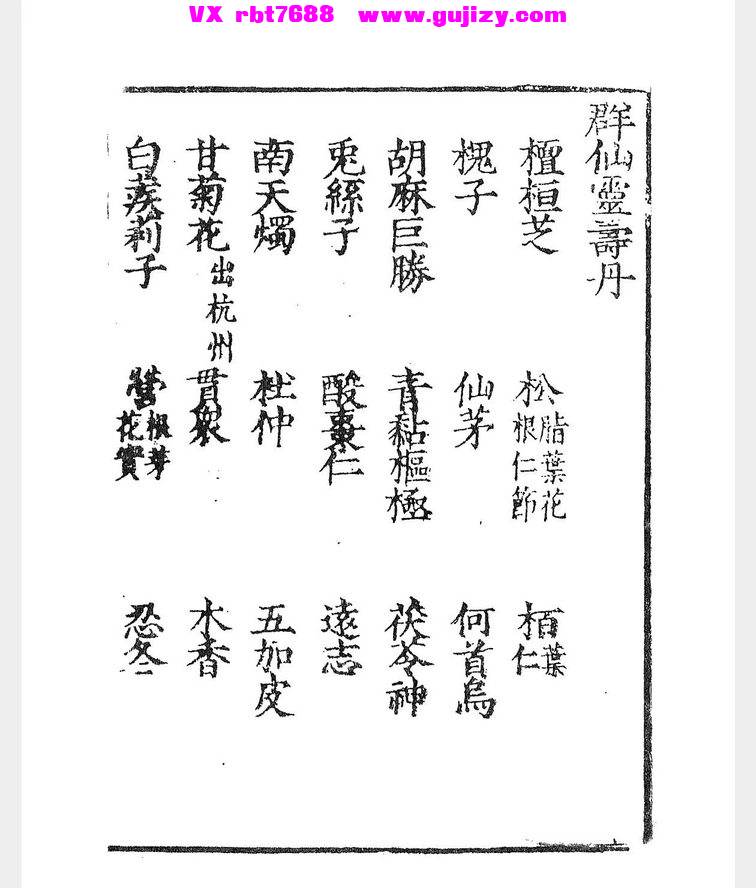 VX rbt7688 www.gujizy.com
群仙靈壽丹
檀桓芝 松脂葉花根仁節 栢葉仁
槐子 仙茅 何首烏
胡麻巨勝 青黏樞極 茯苓神
兎絲子 酸棗仁 遠志
南天燭 杜仲 五加皮
甘菊花出杭州 貫衆 木香
白蒺莉子 營根芽花實 忍冬